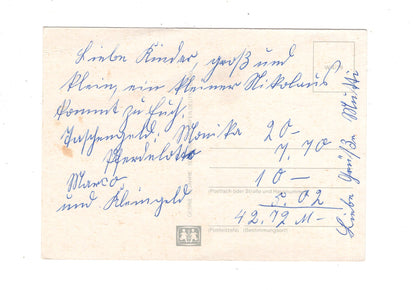 Liebe Kinder, groß und
klein, ein kleiner Nikolaus
kommt zu Euch.
Taschengeld, Monika 20-
Pferdelotto 7,70
Marco 10-
und Kleingeld 5.02
42.72 M-
Liebe Grüße Mutti
(Postfach oder Straße und Hausnummer)
(Postleitzahl) (Bestimmungsort)